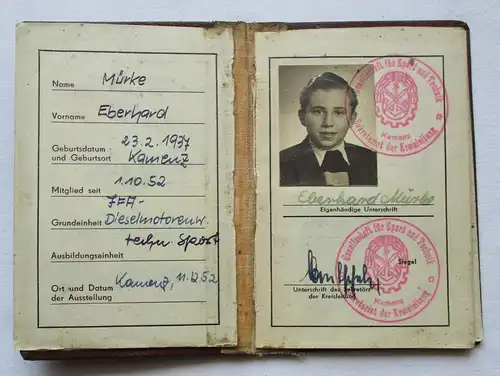 Name Mürke
Vorname Eberhard
Geburtsdatum 23.2.1937
und Geburtsort Kamenz
Mitglied seit 1.10.52
Grundeinheit Dieselmotorenw.
techn Sport
Ausbildungseinheit
Ort und Datum Kamenz, 11.12.52
der Ausstellung
Gesellschaft für Sport und Technik
Kamenz
Sekretariat der Kreisleitung
Eberhard Mürke
Eigenhändige Unterschrift
Gesellschaft für Sport und Technik
Siegel
Kamenz
Sekretariat der Kreisleitung
Unterschrift des Sekretärs
der Kreisleitung